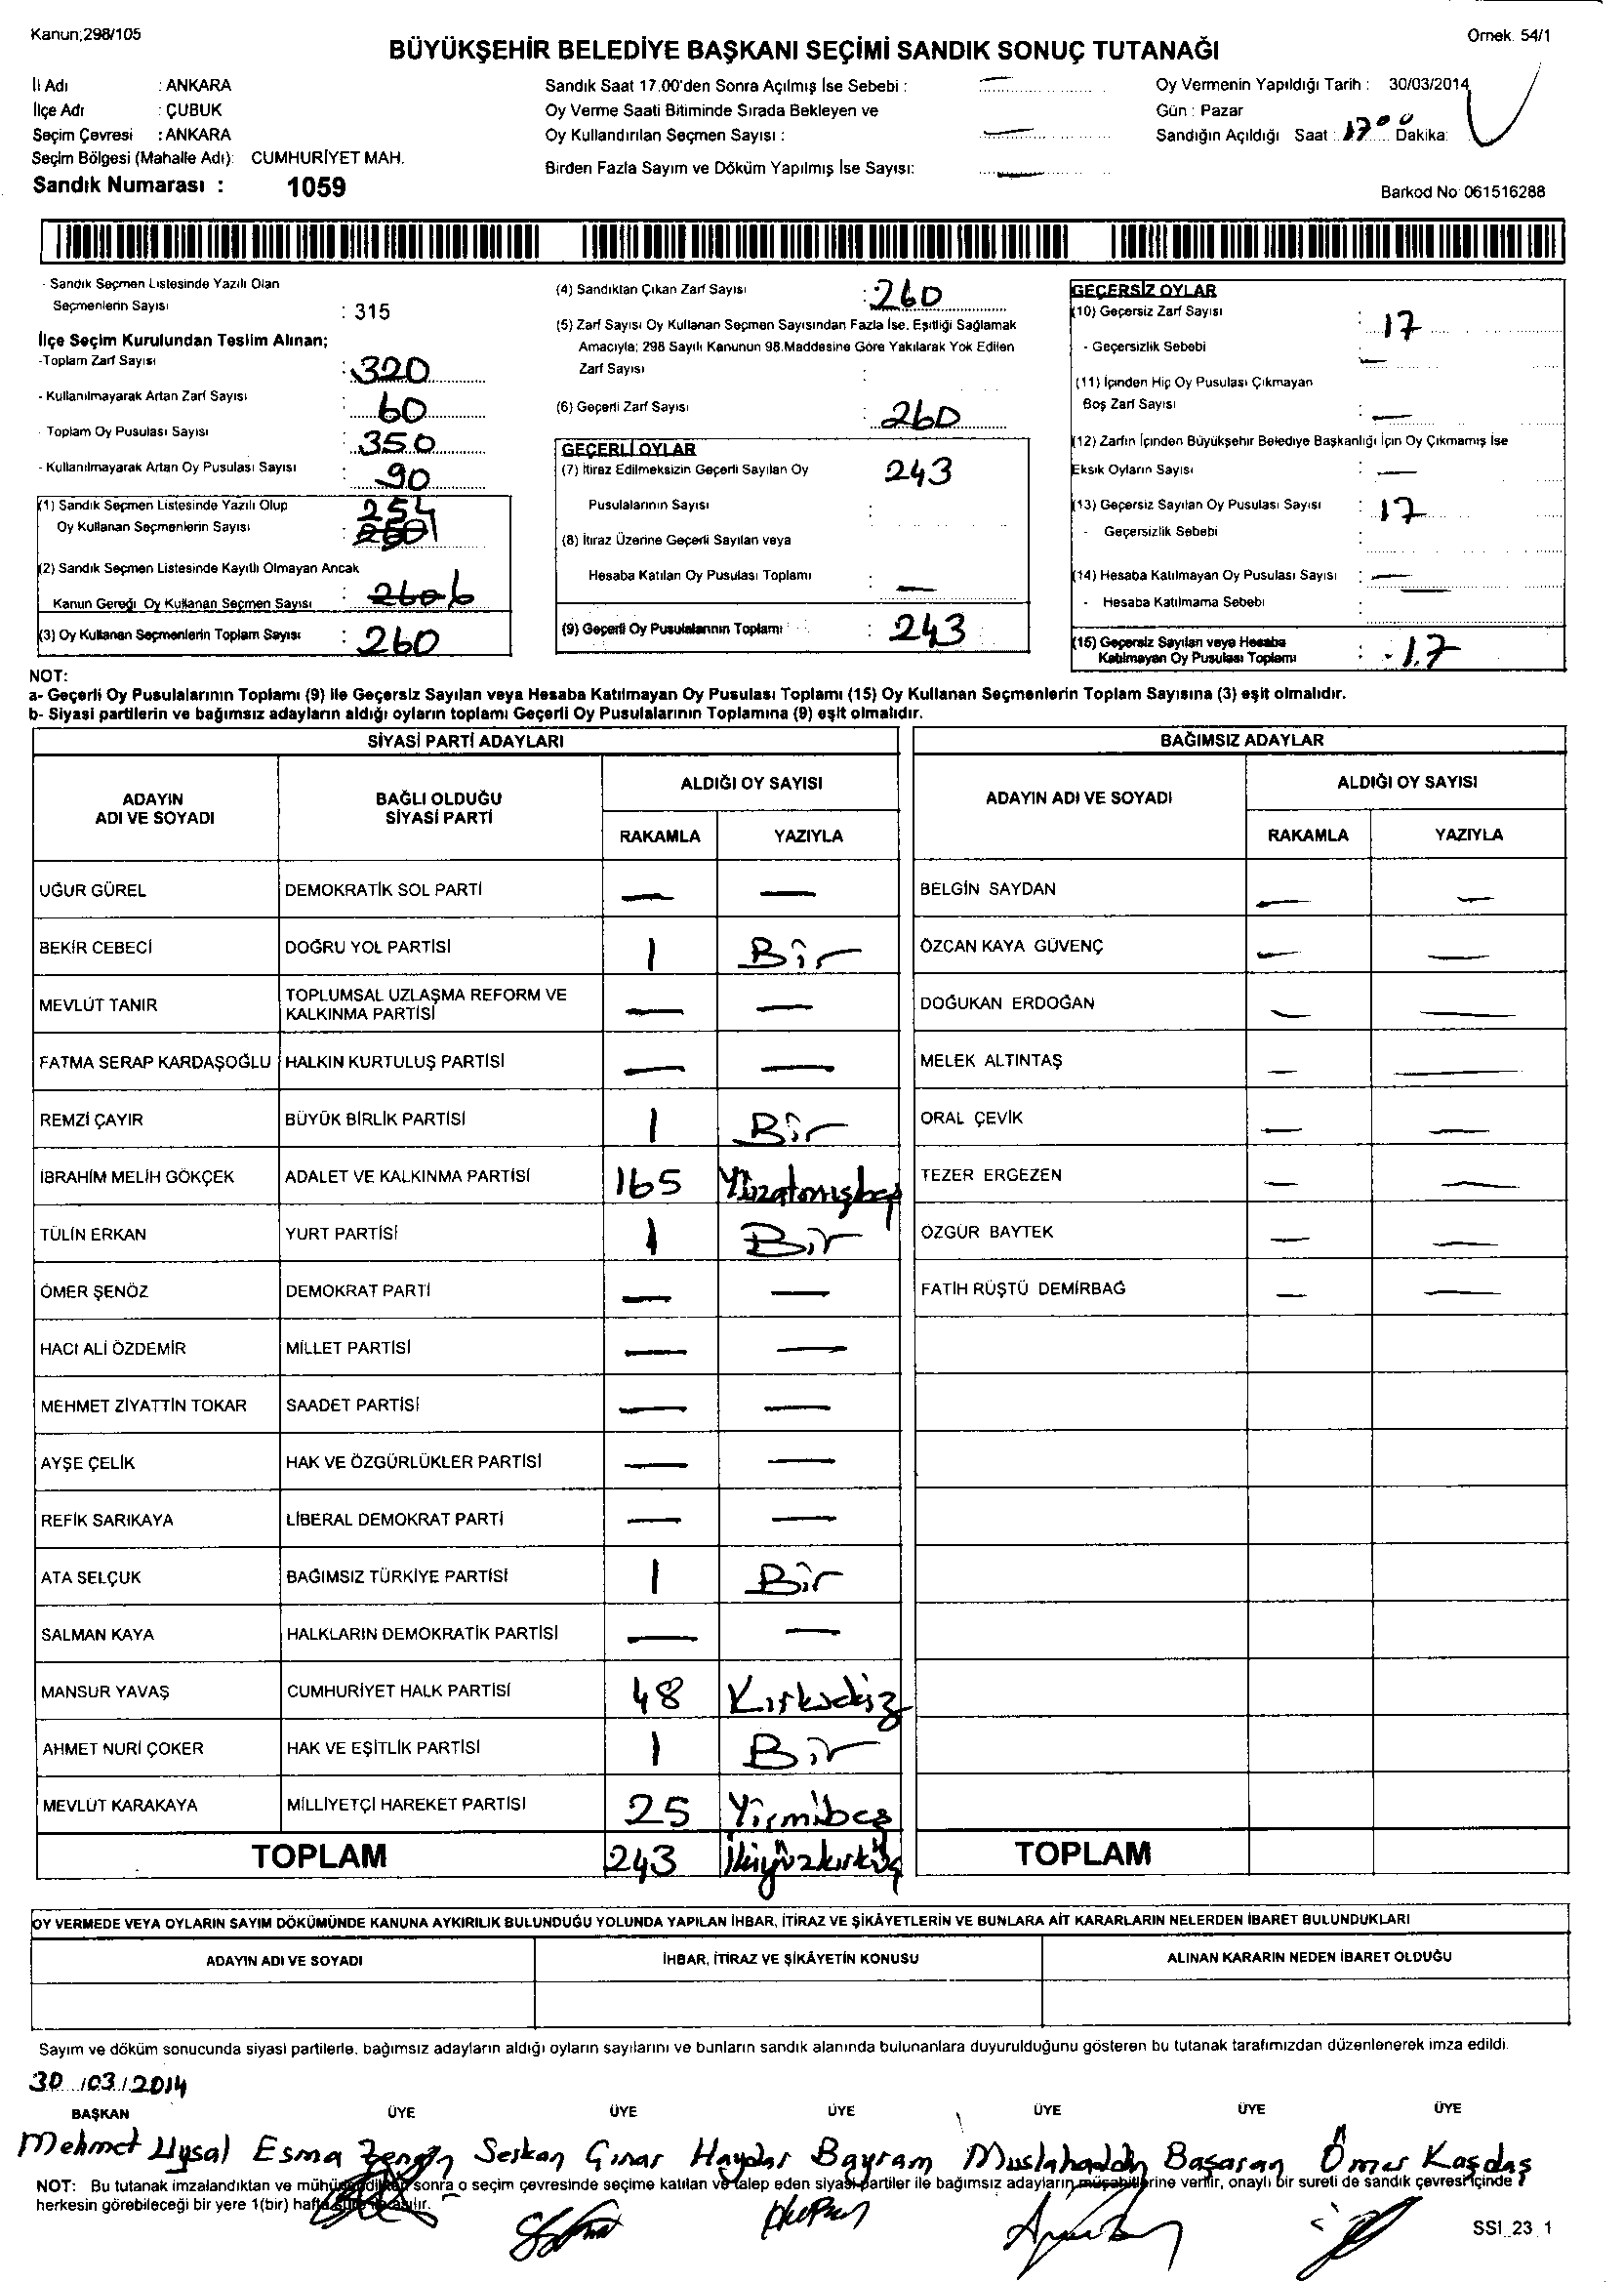 Kanun;298/105
Örnek. 54/1
BÜYÜKŞEHİR BELEDİYE BAŞKANI SEÇİMİ SANDIK SONUÇ TUTANAĞI
İl Adı : ANKARA
İlçe Adı : ÇUBUK
Seçim Çevresi : ANKARA
Seçim Bölgesi (Mahalle Adı): CUMHURİYET MAH.
Sandık Numarası : 1059
Sandık Saat 17.00'den Sonra Açılmış İse Sebebi : —
Oy Verme Saati Bitiminde Sırada Bekleyen ve
Oy Kullandırılan Seçmen Sayısı : —
Birden Fazla Sayım ve Döküm Yapılmış İse Sayısı: —
Oy Vermenin Yapıldığı Tarih : 30/03/2014
Gün : Pazar
Sandığın Açıldığı Saat : 17 00 Dakika:
Barkod No 061516288
- Sandık Seçmen Listesinde Yazılı Olan
Seçmenlerin Sayısı : 315
İlçe Seçim Kurulundan Teslim Alınan;
-Toplam Zarf Sayısı : 320
- Kullanılmayarak Artan Zarf Sayısı : 60
- Toplam Oy Pusulası Sayısı : 350
- Kullanılmayarak Artan Oy Pusulası Sayısı : 90
(1) Sandık Seçmen Listesinde Yazılı Olup 254
Oy Kullanan Seçmenlerin Sayısı :
(2) Sandık Seçmen Listesinde Kayıtlı Olmayan Ancak
Kanun Gereği Oy Kullanan Seçmen Sayısı : 260 6
(3) Oy Kullanan Seçmenlerin Toplam Sayısı : 260
(4) Sandıktan Çıkan Zarf Sayısı : 260
(5) Zarf Sayısı Oy Kullanan Seçmen Sayısından Fazla İse, Eşitliği Sağlamak
Amacıyla; 298 Sayılı Kanunun 98.Maddesine Göre Yakılarak Yok Edilen
Zarf Sayısı :
(6) Geçerli Zarf Sayısı : 260
GEÇERLİ OYLAR
(7) İtiraz Edilmeksizin Geçerli Sayılan Oy 243
Pusulalarının Sayısı :
(8) İtiraz Üzerine Geçerli Sayılan veya
Hesaba Katılan Oy Pusulası Toplamı : —
(9) Geçerli Oy Pusulalarının Toplamı : 243
GEÇERSİZ OYLAR
(10) Geçersiz Zarf Sayısı : 17
- Geçersizlik Sebebi : —
(11) İçinden Hiç Oy Pusulası Çıkmayan
Boş Zarf Sayısı : —
(12) Zarfın İçinden Büyükşehir Belediye Başkanlığı İçin Oy Çıkmamış İse
Eksik Oyların Sayısı : —
(13) Geçersiz Sayılan Oy Pusulası Sayısı : 17
- Geçersizlik Sebebi :
(14) Hesaba Katılmayan Oy Pusulası Sayısı : —
- Hesaba Katılmama Sebebi :
(15) Geçersiz Sayılan veya Hesaba
Katılmayan Oy Pusulası Toplamı : 17
NOT:
a- Geçerli Oy Pusulalarının Toplamı (9) ile Geçersiz Sayılan veya Hesaba Katılmayan Oy Pusulası Toplamı (15) Oy Kullanan Seçmenlerin Toplam Sayısına (3) eşit olmalıdır.
b- Siyasi partilerin ve bağımsız adayların aldığı oyların toplamı Geçerli Oy Pusulalarının Toplamına (9) eşit olmalıdır.
SİYASİ PARTİ ADAYLARI
ADAYIN ADI VE SOYADI BAĞLI OLDUĞU SİYASİ PARTİ ALDIĞI OY SAYISI
RAKAMLA YAZIYLA
UĞUR GÜREL DEMOKRATİK SOL PARTİ — —
BEKİR CEBECİ DOĞRU YOL PARTİSİ 1 Bir
MEVLÜT TANIR TOPLUMSAL UZLAŞMA REFORM VE KALKINMA PARTİSİ — —
FATMA SERAP KARDAŞOĞLU HALKIN KURTULUŞ PARTİSİ — —
REMZİ ÇAYIR BÜYÜK BİRLİK PARTİSİ 1 Bir
İBRAHİM MELİH GÖKÇEK ADALET VE KALKINMA PARTİSİ 165 Yüzatmışbeş
TÜLİN ERKAN YURT PARTİSİ 1 Bir
ÖMER ŞENÖZ DEMOKRAT PARTİ — —
HACI ALİ ÖZDEMİR MİLLET PARTİSİ — —
MEHMET ZİYATTİN TOKAR SAADET PARTİSİ — —
AYŞE ÇELİK HAK VE ÖZGÜRLÜKLER PARTİSİ — —
REFİK SARIKAYA LİBERAL DEMOKRAT PARTİ — —
ATA SELÇUK BAĞIMSIZ TÜRKİYE PARTİSİ 1 Bir
SALMAN KAYA HALKLARIN DEMOKRATİK PARTİSİ — —
MANSUR YAVAŞ CUMHURİYET HALK PARTİSİ 48 Kırksekiz
AHMET NURİ ÇOKER HAK VE EŞİTLİK PARTİSİ 1 Bir
MEVLÜT KARAKAYA MİLLİYETÇİ HAREKET PARTİSİ 25 Yirmibeş
TOPLAM 243 İkiyüzkırküç
BAĞIMSIZ ADAYLAR
ADAYIN ADI VE SOYADI ALDIĞI OY SAYISI
RAKAMLA YAZIYLA
BELGİN SAYDAN — —
ÖZCAN KAYA GÜVENÇ — —
DOĞUKAN ERDOĞAN — —
MELEK ALTINTAŞ — —
ORAL ÇEVİK — —
TEZER ERGEZEN — —
ÖZGÜR BAYTEK — —
FATİH RÜŞTÜ DEMİRBAĞ — —
TOPLAM
OY VERMEDE VEYA OYLARIN SAYIM DÖKÜMÜNDE KANUNA AYKIRILIK BULUNDUĞU YOLUNDA YAPILAN İHBAR, İTİRAZ VE ŞİKÂYETLERİN VE BUNLARA AİT KARARLARIN NELERDEN İBARET BULUNDUKLARI
ADAYIN ADI VE SOYADI İHBAR, İTİRAZ VE ŞİKÂYETİN KONUSU ALINAN KARARIN NEDEN İBARET OLDUĞU
Sayım ve döküm sonucunda siyasi partilerle, bağımsız adayların aldığı oyların sayılarını ve bunların sandık alanında bulunanlara duyurulduğunu gösteren bu tutanak tarafımızdan düzenlenerek imza edildi.
30 /03/2014
BAŞKAN ÜYE ÜYE ÜYE ÜYE ÜYE ÜYE
Mehmet Uysal Esma Zengin Serkan Çınar Haydar Bayram Muslahaddin Başaran Ömer Kaşdaş
NOT: Bu tutanak imzalandıktan ve mühürlendikten sonra o seçim çevresinde seçime katılan ve talep eden siyasi partiler ile bağımsız adayların müşahitlerine verilir, onaylı bir sureti de sandık çevresi içinde
herkesin görebileceği bir yere 1(bir) hafta süre ile asılır.
SSI_23_1